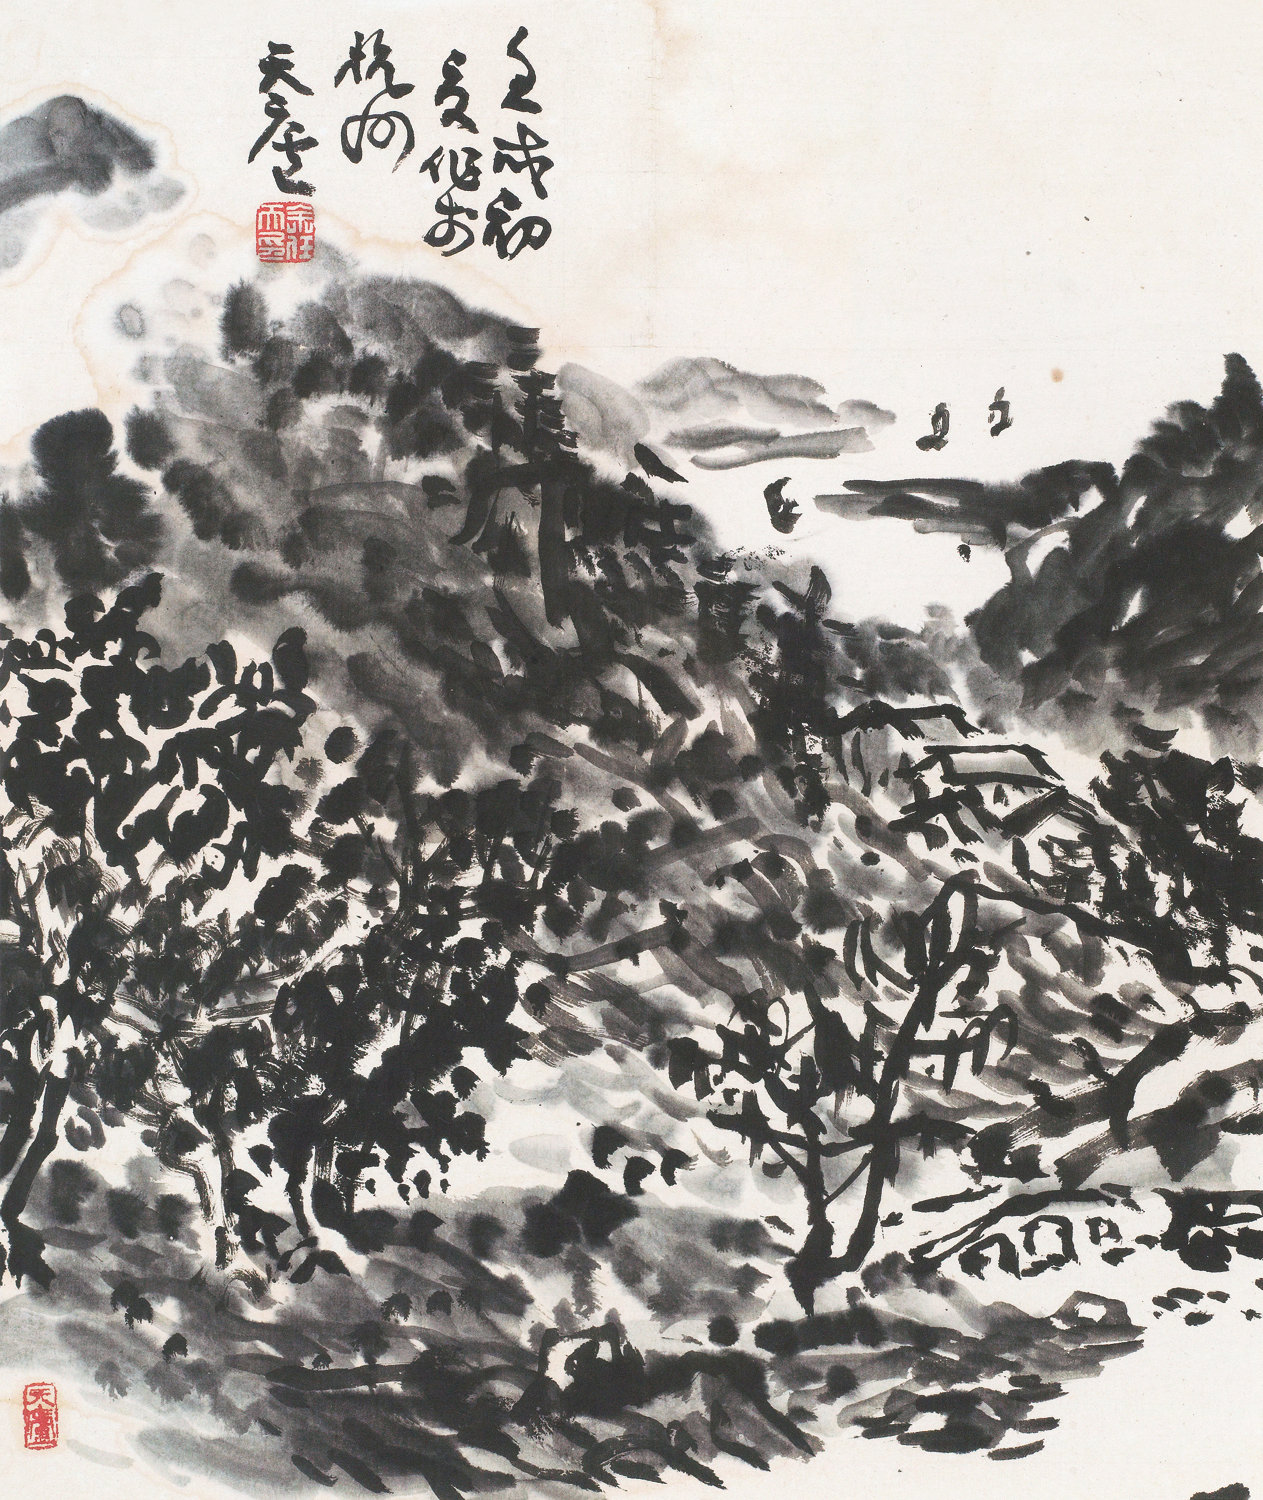 壬戌初
夏作於
杭州
天廬
余任天印
天廬